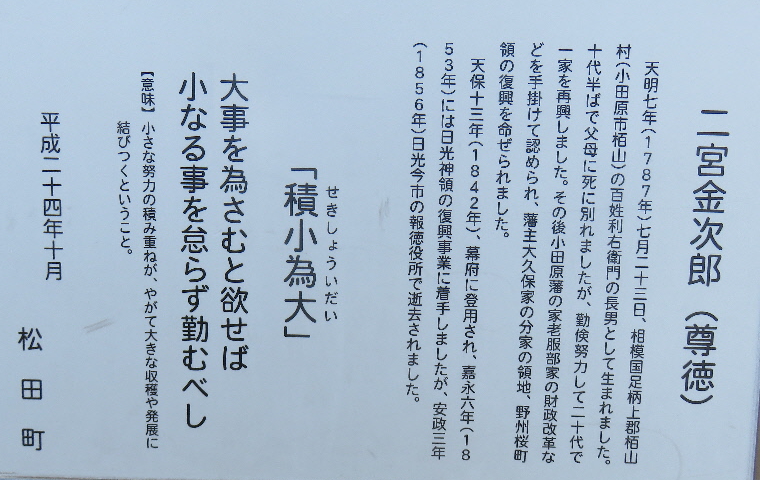 二宮金次郎(尊徳)
天明七年(1787年)七月二十三日、相模国足柄上郡栢山
村(小田原市栢山)の百姓利右衛門の長男として生まれました。
十代半ばで父母に死に別れましたが、勤倹努力して二十代で
一家を再興しました。その後小田原藩の家老服部家の財政改革な
どを手掛けて認められ、藩主大久保家の分家の領地、野州桜町
領の復興を命ぜられました。
天保十三年(1842年)、幕府に登用され、嘉永六年(18
53年)には日光神領の復興事業に着手しましたが、安政三年
(1856年)日光今市の報徳役所で逝去されました。
せきしょういだい
「積小為大」
大事を為さむと欲せば
小なる事を怠らず勤むべし
【意味】小さな努力の積み重ねが、やがて大きな収穫や発展に
結びつくということ。
平成二十四年十月
松田町